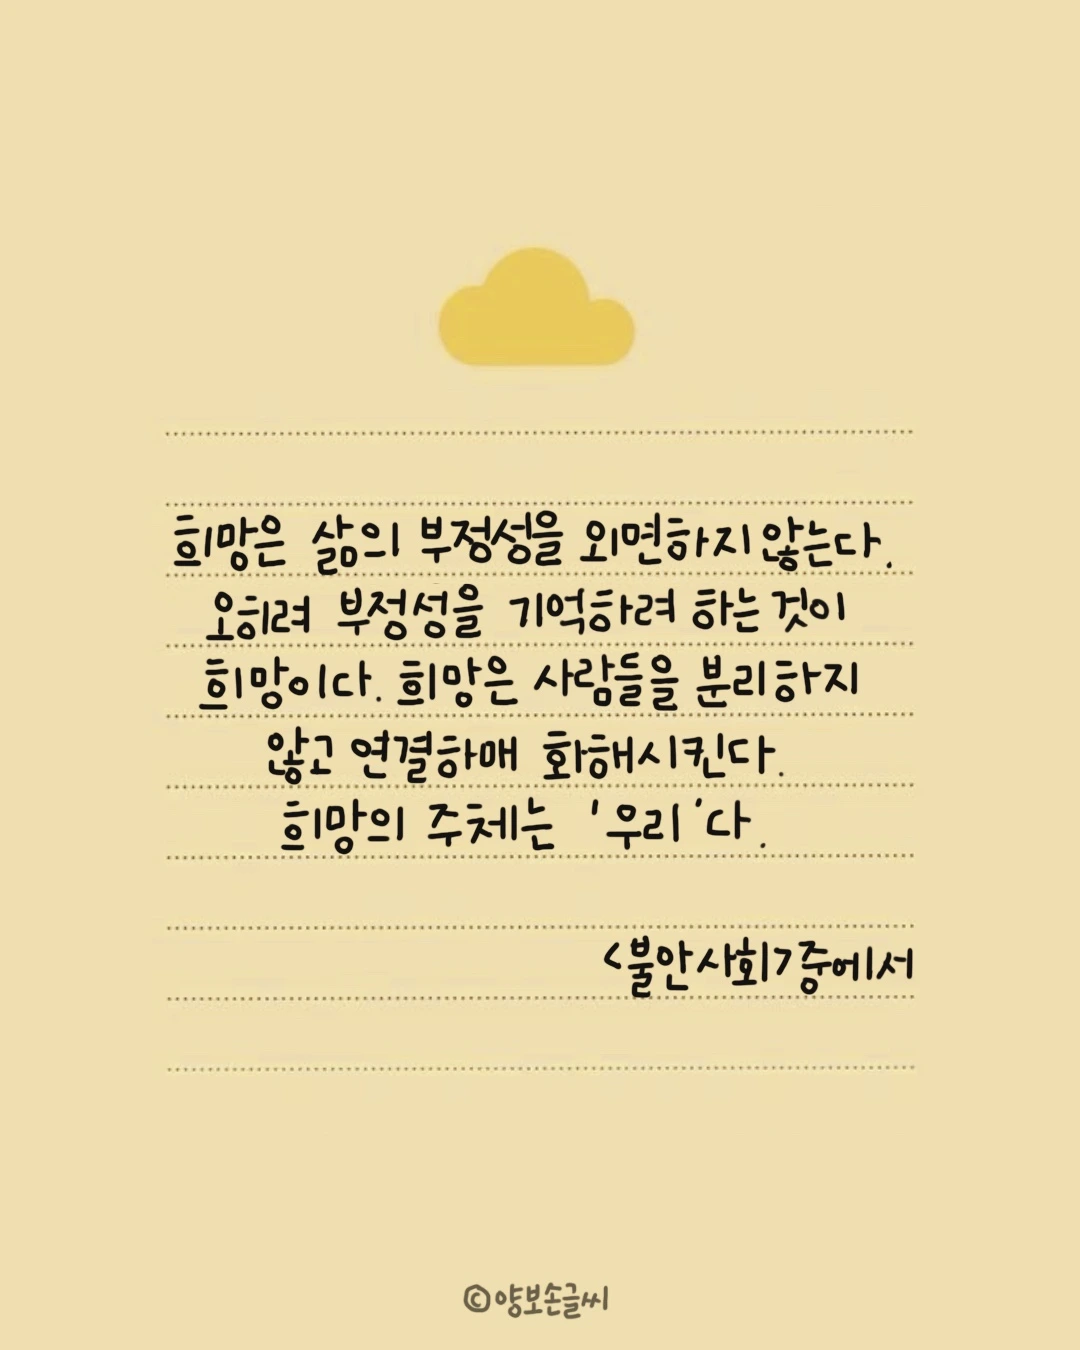 희망은 삶의 부정성을 외면하지 않는다.
오히려 부정성을 기억하려 하는 것이
희망이다. 희망은 사람들을 분리하지
않고 연결하며 화해시킨다.
희망의 주체는 '우리'다.
<불안사회>중에서
©양보손글씨